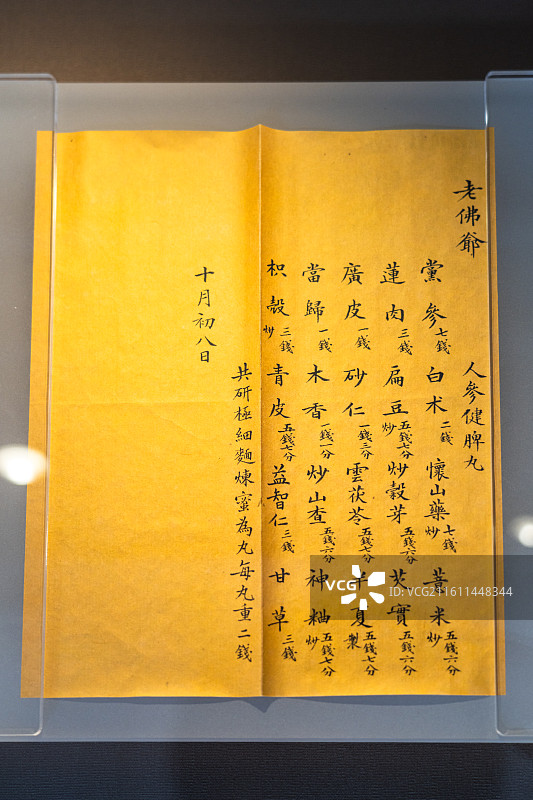 老佛爺
人參健脾丸
黨參七錢 白术二錢 懷山藥炒七錢 薏米炒五錢六分
蓮肉三錢 扁豆炒五錢七分 炒穀芽五錢六分 芡實五錢六分
廣皮一錢 砂仁一錢三分 雲茯苓五錢七分 半夏製五錢七分
當歸一錢 木香一錢一分 炒山查五錢六分 神糊炒五錢七分
枳殼炒三錢 青皮五錢七分 益智仁三錢 甘草三錢
共研極細麵煉蜜為丸每丸重二錢
十月初八日
VCG
VCG211611448344